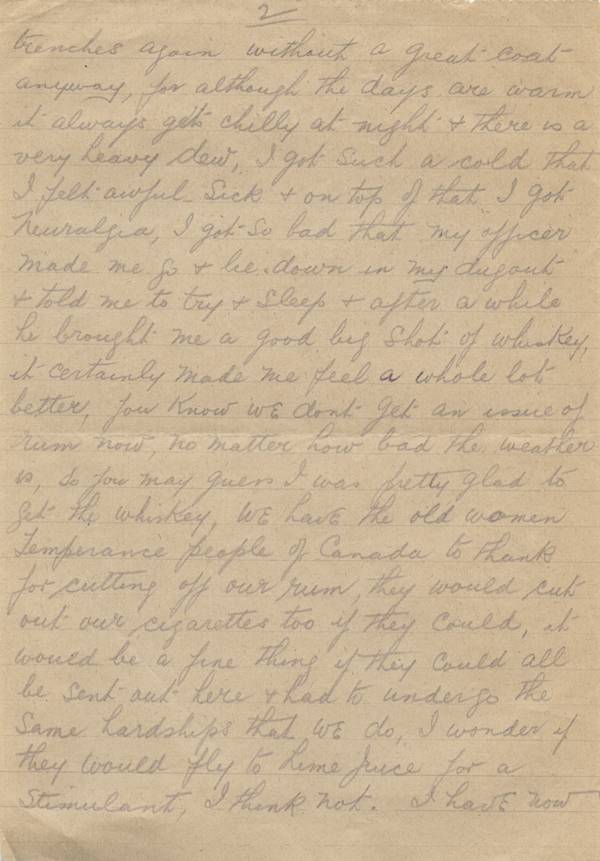 2
trenches again without a great coat
anyway, for although the days are warm
it always gets chilly at night + there is a
very heavy dew, I got such a cold that
I felt awful sick + on top of that I got
Neuralgia, I got so bad that my officer
made me go + lie down in my dugout
+ told me to try + sleep + after a while
he brought me a good big shot of whiskey,
it certainly made me feel a whole lot
better, you know we dont get an issue of
rum now, no matter how bad the weather
is, so you may guess I was pretty glad to
get the whiskey, WE have the old women
Temperance people of Canada to thank
for cutting off our rum, they would cut
out our cigarettes too if they could, it
would be a fine thing if they could all
be sent out here + had to undergo the
same hardships that WE do, I wonder if
they would fly to Lime Juice for a
Stimulant, I think not. I have now